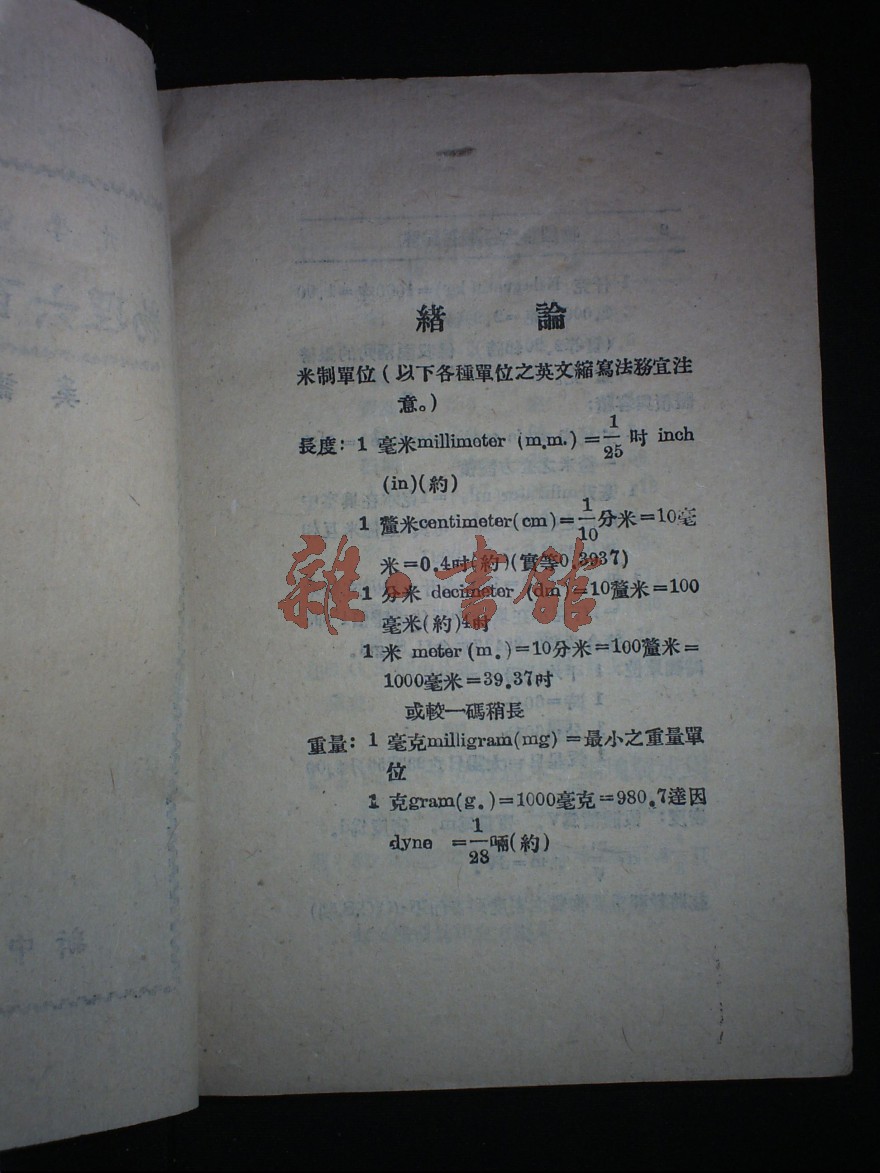 緒 論
米制單位(以下各種單位之英文縮寫法務宜注
意。)
長度:1 毫米millimeter (m.m.)=1/25 吋 inch
(in)(約)
1 釐米centimeter(cm)=1/10分米=10毫
米=0.4吋(約)(實等0.3937)
1 分米 decimeter (dm)=10釐米=100
毫米(約)4吋
1 米 meter(m.)=10分米=100釐米=
1000毫米=39.37吋
或較一碼稍長
重量:1 毫克milligram(mg)=最小之重量單
位
1 克gram(g.)=1000毫克=980.7達因
dyne =1/28啢(約)
雜·書館